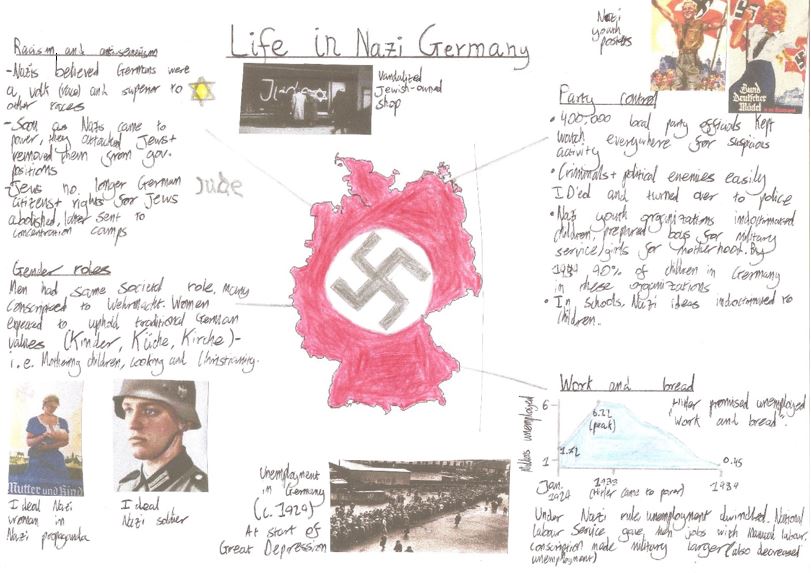 Life in Nazi Germany
Racism and antisemitism
- Nazis believed Germans were
a, volk (race) and superior to
other races
- Soon as Nazis came to
power, they attacked Jews +
removed them from gov.
positions
- Jews no longer German
citizens + rights for Jews
abolished, later sent to
concentration camps
Jude
Vandalized
Jewish-owned
shop
Nazi
youth
posters
Bund
Deutscher
Mädel
Party control
• 400,000 local party officials kept
watch everywhere for suspicious
activity
• Criminals + political enemies easily
ID'ed and turned over to police
• Nazi youth organizations indoctrinated
children, prepared boys for military
service/girls for motherhood. By
1939 90% of children in Germany
in these organizations
• In schools, Nazi ideas indoctrinated to
children.
Gender roles
Men had same societal role, many
conscripted to Wehrmacht. Women
expected to uphold traditional German
values (Kinder, Küche, Kirche)-
i.e. Mothering children, cooking and Christianity.
Mutter und Kind
Ideal Nazi
woman in
Nazi propaganda
Ideal
Nazi soldier
Unemployment
in Germany
(c. 1929)
At start of
Great Depression
Work and bread
Hitler promised unemployed
"Work and bread".
unemployed
6
6.2
(peak)
1
0.45
Jan.
1933
(Hitler came to power)
1939
Under Nazi rule, unemployment dwindled. National
Labour Service gave men jobs with manual labour.
conscription made military larger (also decreased
unemployment)